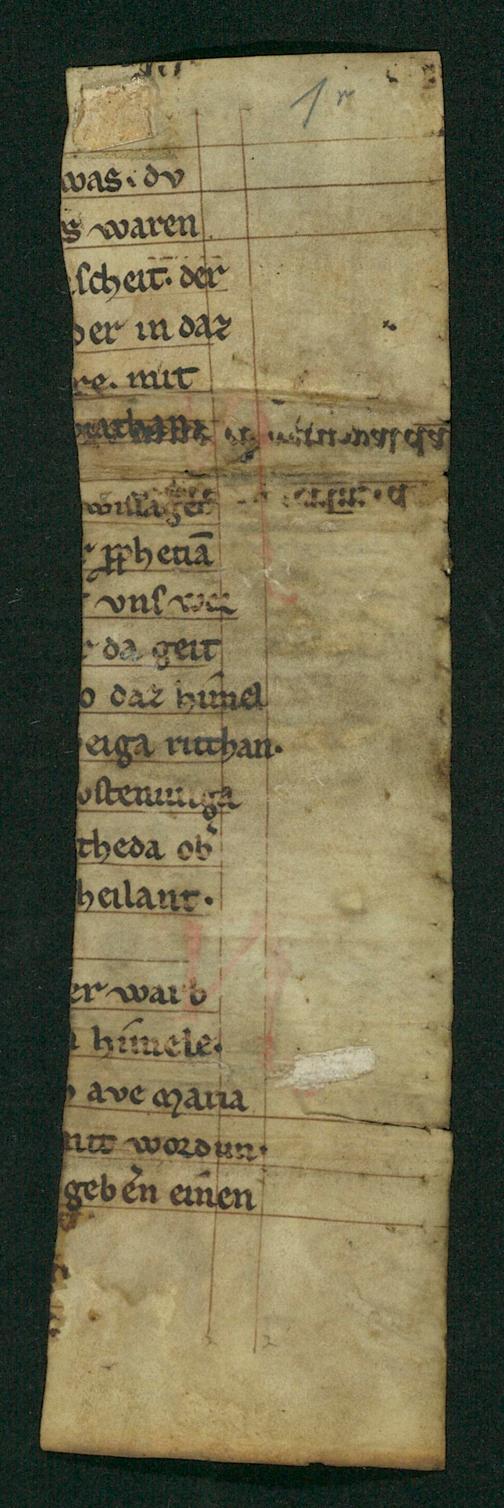 1r
was. dv
s waren
scheit. der
der in daz
re. mit
wissaget
r p̱phetiā
r vns
r da geit
o daz himel
eiga ruthan.
ostenunga
theda ob
heilant.
er warb
himele.
ave maria
mit wordun.
geben einen